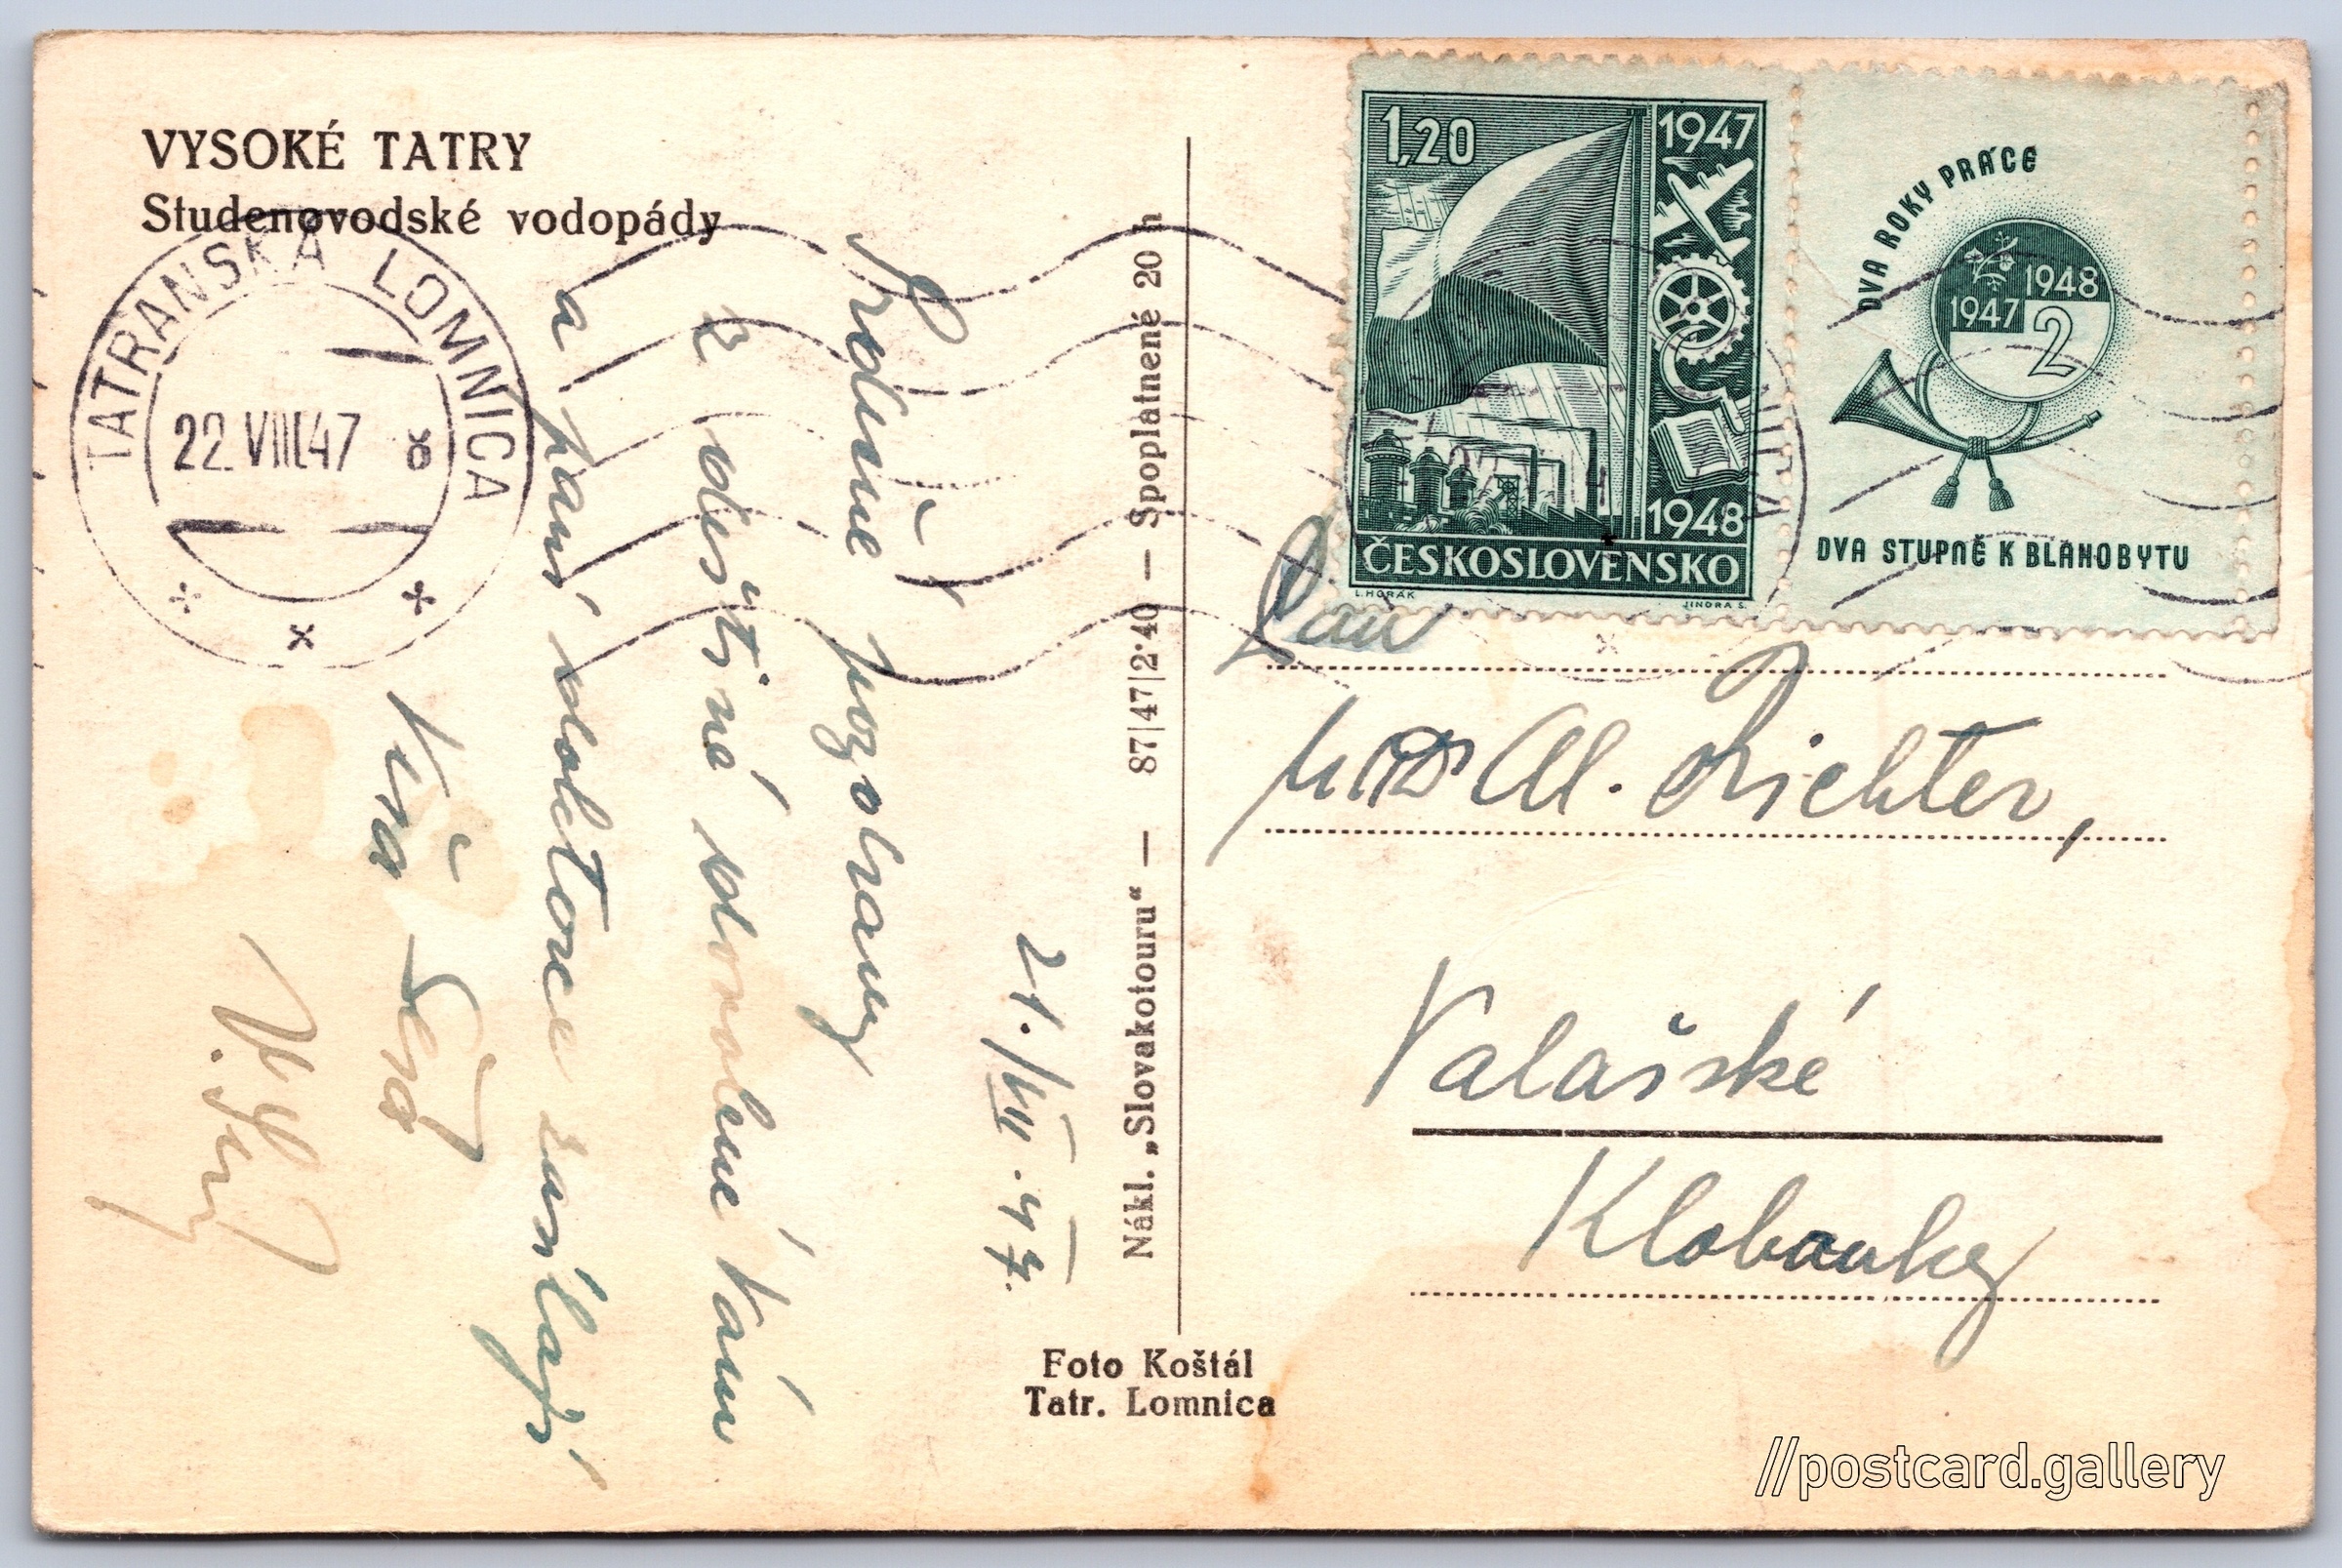 VYSOKÉ TATRY
Studenovodské vodopády
TATRANSKÁ LOMNICA
22.VIII.47
8
21./VIII.47.
Srdečné pozdravy
z deštivé dovolené Vám
a paní doktorce zasílají
Nákl. „Slovakotouru“ — 87|47|2·40 — Spoplatnené 20 h
Foto Koštál
Tatr. Lomnica
1,20
1947
1948
ČESKOSLOVENSKO
L. HORÁK
JINDRA S.
DVA ROKY PRÁCE
1947
1948
2
DVA STUPNĚ K BLAHOBYTU
Pan
Al. Richter,
Valašské
Klobouky
//postcard.gallery